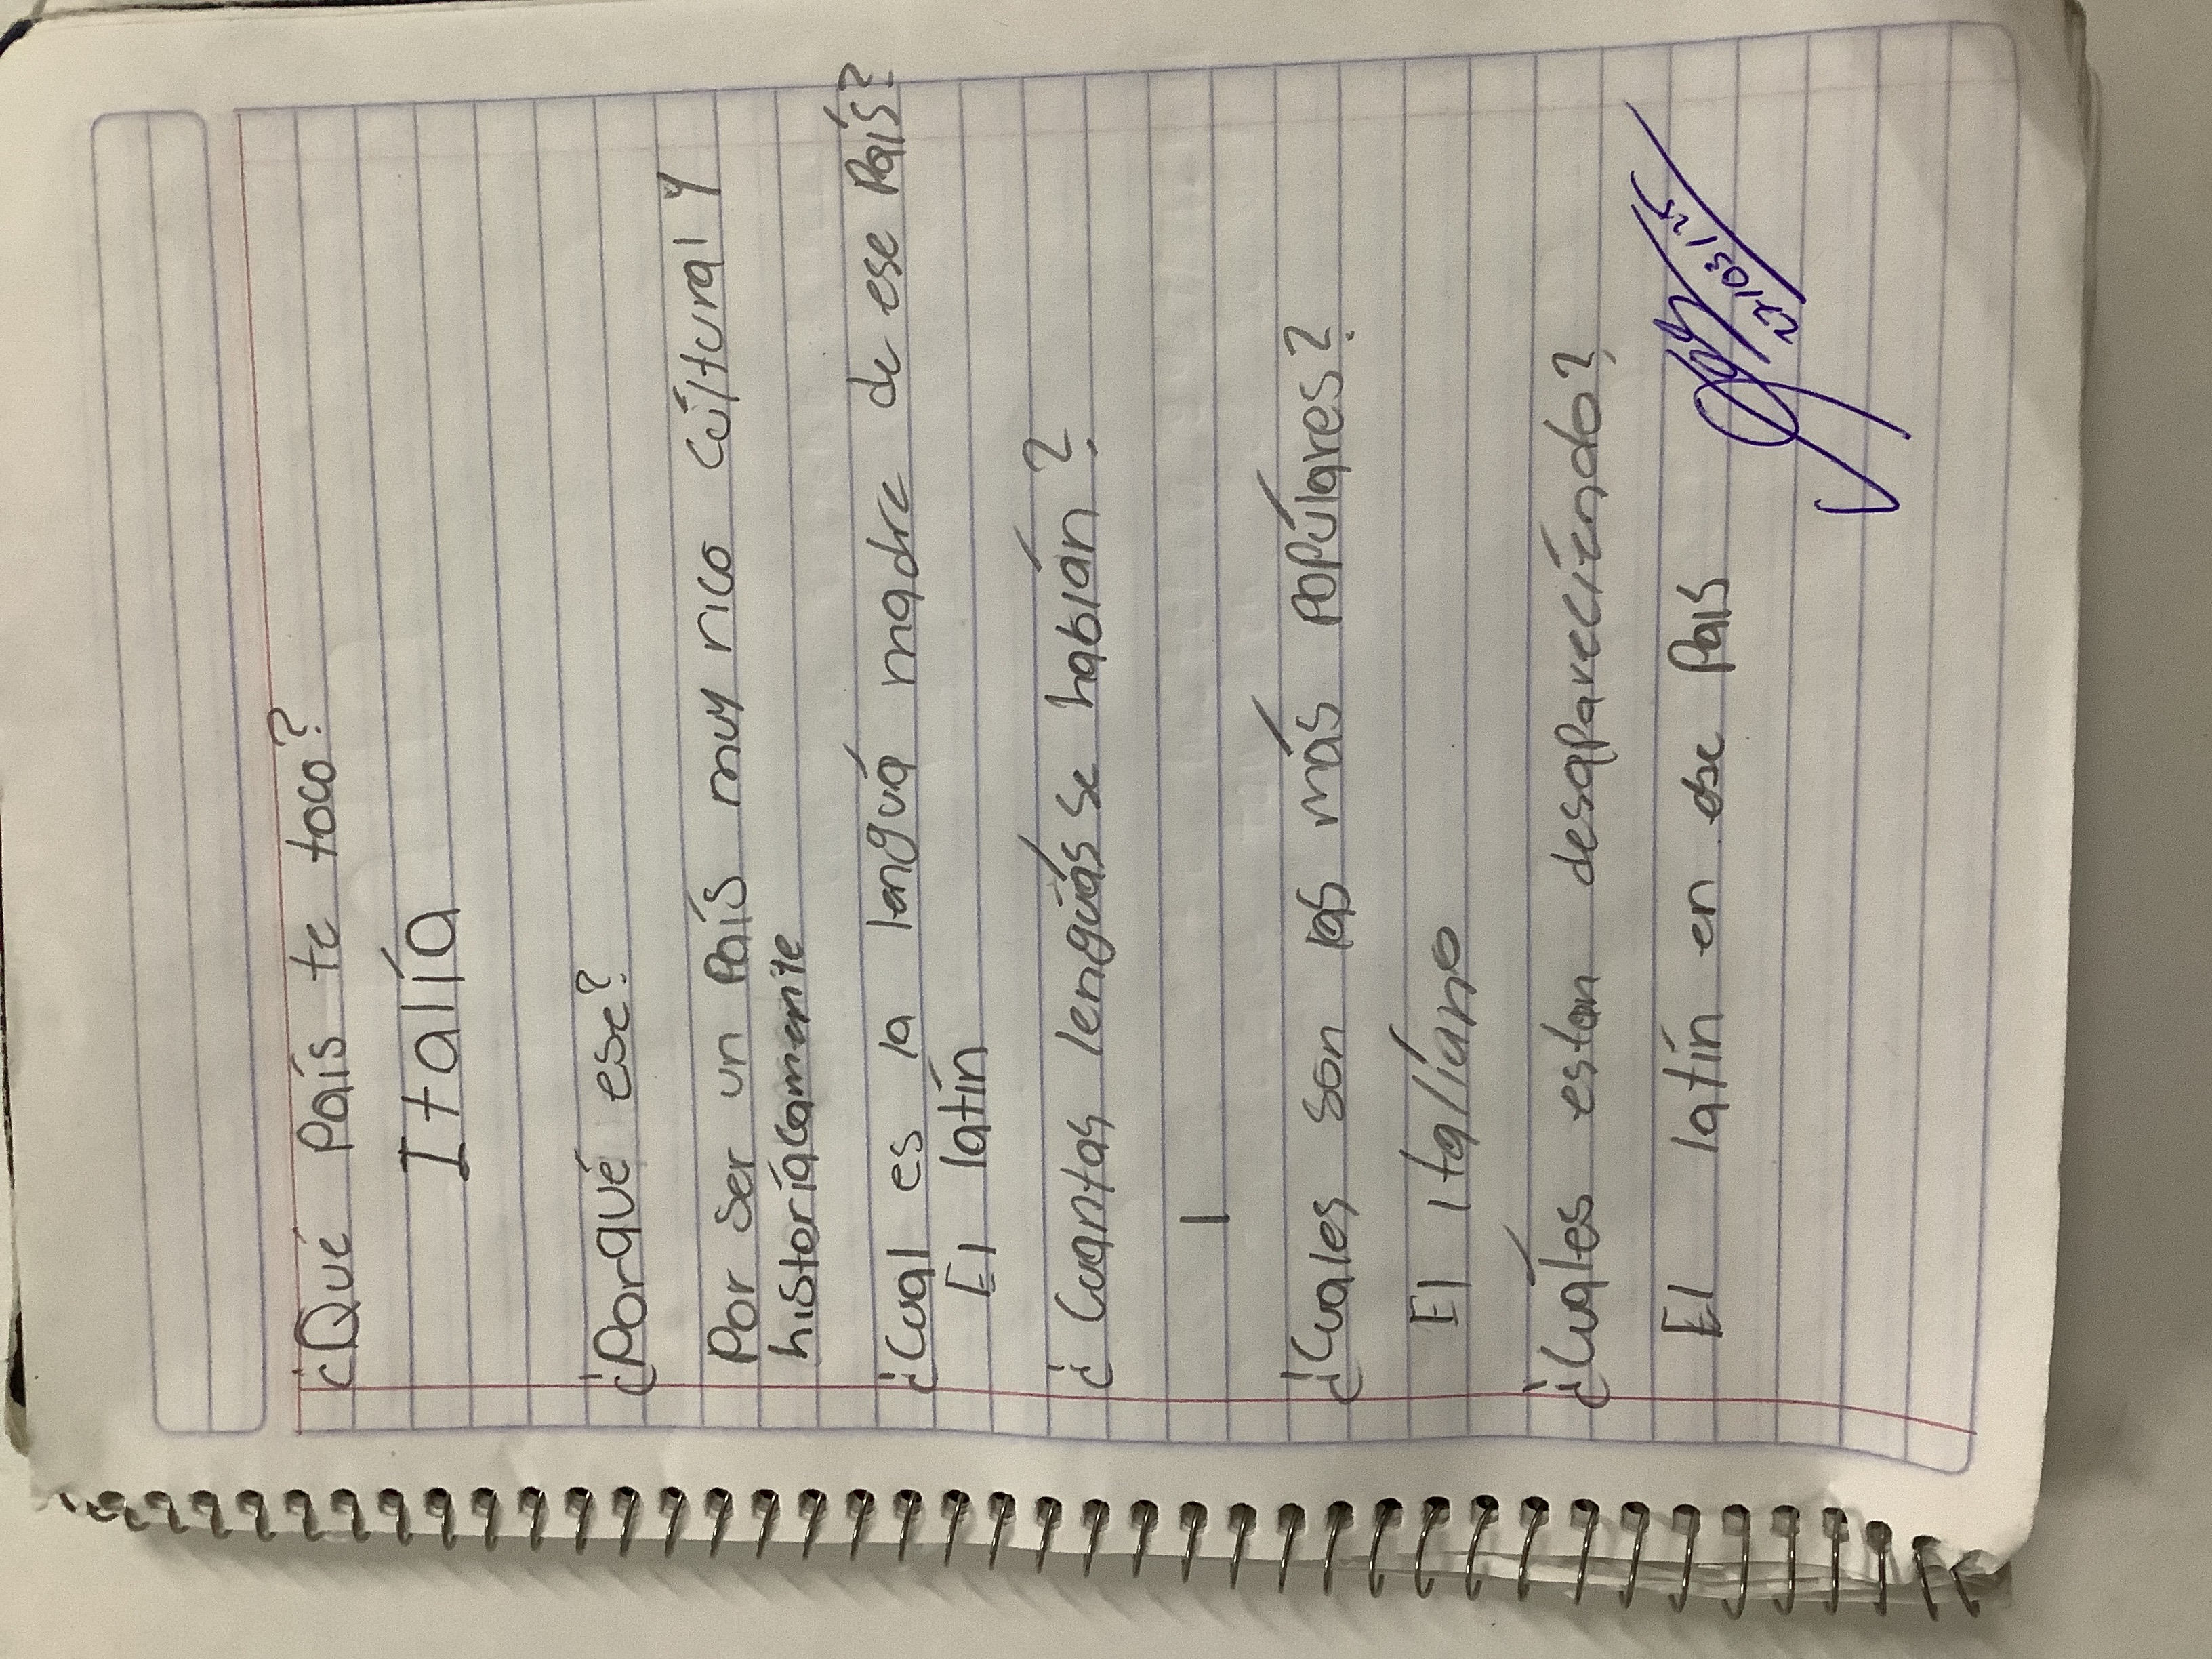 ¿Qué País te toco?
Italía
¿Porqué ese?
Por ser un País muy rico cúltural y
historíacamente
¿Cual es la lenguá madre de ese País?
El latín
¿Cuantas lenguás se hablán?
1
¿Cuales son las más populáres?
El italíano
¿Cuáles estan desaparecíendo?
El latín en ese País
27/03/25